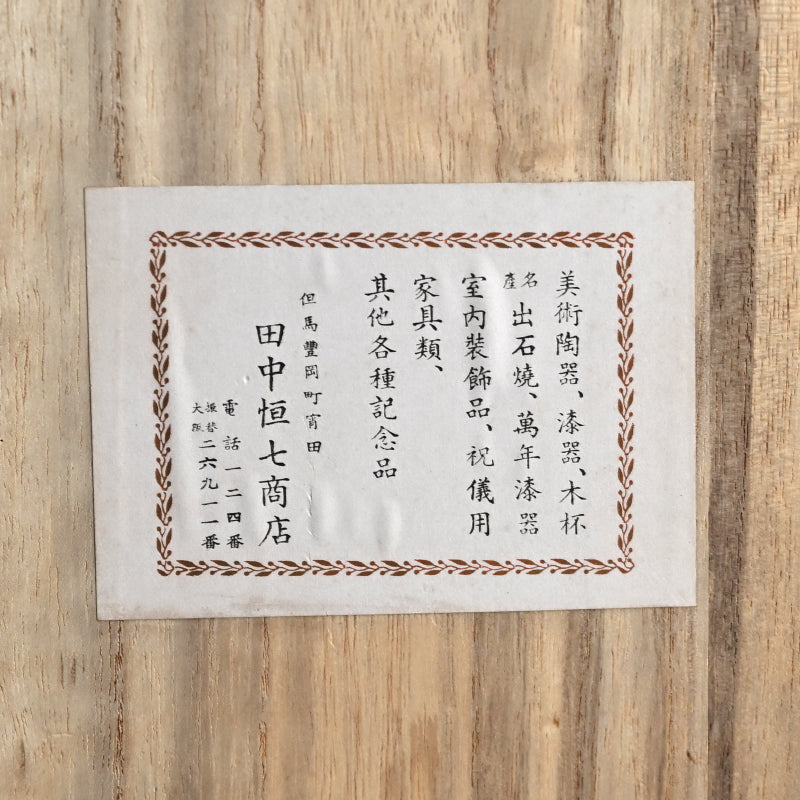 美術陶器、漆器、木杯
名産 出石燒、萬年漆器
室内裝飾品、祝儀用
家具類、
其他各種記念品
但馬豐岡町宵田
田中恒七商店
電話一二四番
振替大阪二六九一一番